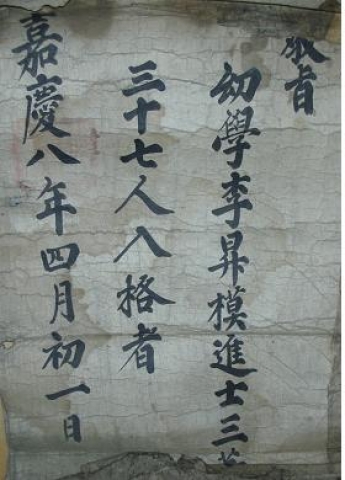 敎旨
幼學李昇模進士三等
三十七人入格者
嘉慶八年四月初一日